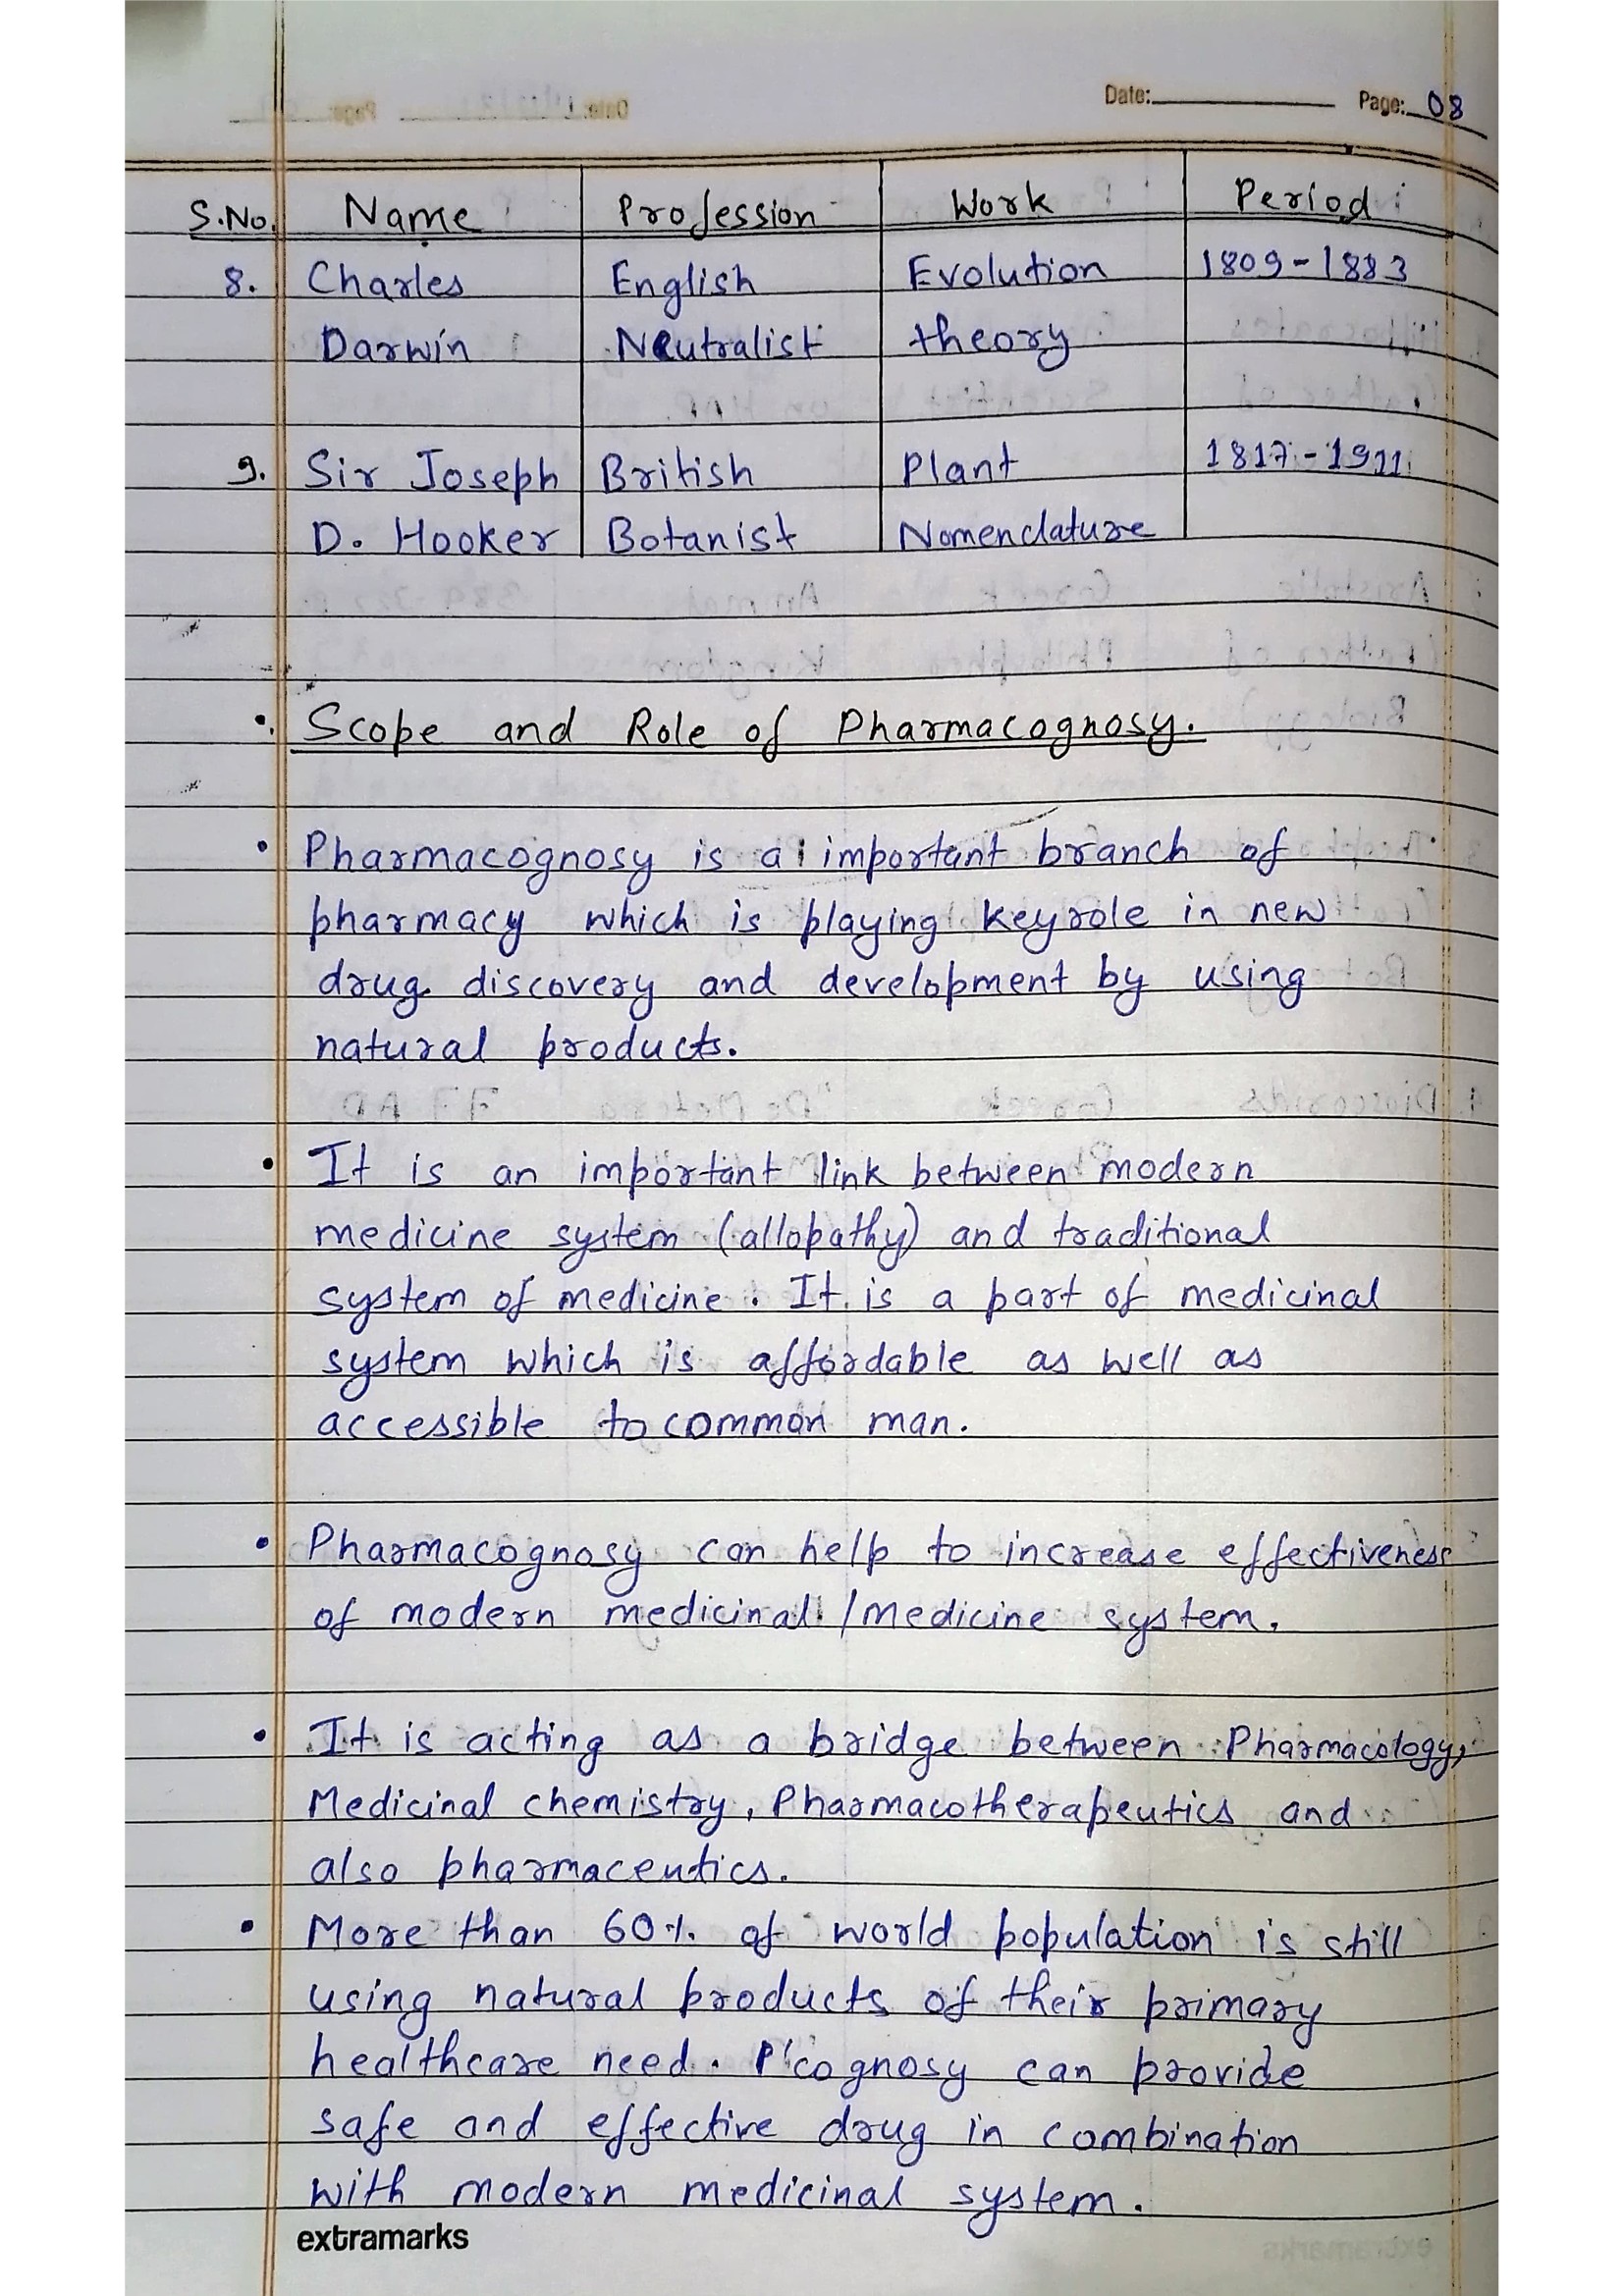 Date: Page: 08
S.No. Name Profession Work Period
8. Charles English Evolution 1809-1883
Darwin Neutralist theory
9. Sir Joseph British Plant 1817-1911
D. Hooker Botanist Nomenclature
• Scope and Role of Pharmacognosy.
• Pharmacognosy is a important branch of
pharmacy which is playing key role in new
drug discovery and development by using
natural products.
• It is an important link between modern
medicine system (allopathy) and traditional
system of medicine. It is a part of medicinal
system which is affordable as well as
accessible to common man.
• Pharmacognosy can help to increase effectiveness
of modern medicinal /medicine system.
• It is acting as a bridge between Pharmacology,
Medicinal chemistry, Pharmacotherapeutics and
also pharmaceutics.
• More than 60% of world population is still
using natural products of their primary
healthcare need. P'cognosy can provide
safe and effective drug in combination
with modern medicinal system.
extramarks